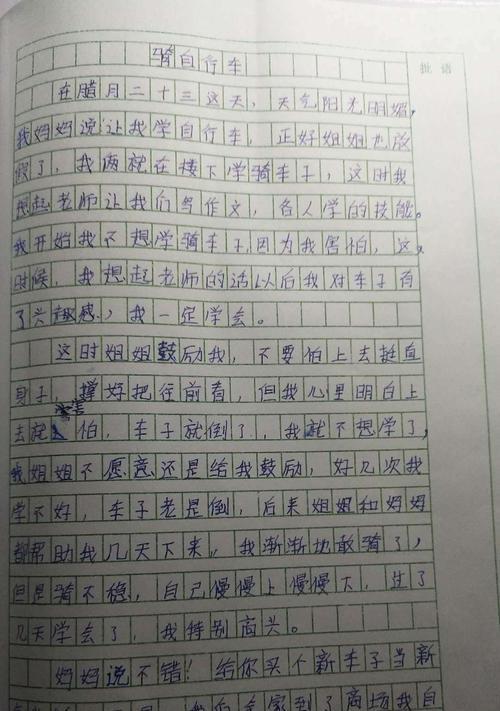 骑自行车
批语
在腊月二十三这天，天气阳光明媚，
我妈妈说让我学自行车，正好姐姐也放
假了，我两就在楼下学骑车子，这时我
想起老师让我们写作文，各人学的技能。
我开始我不想学骑车子因为我害怕，这
时候，我想起老师的话以后我对车子有
了兴趣感，我一定学会。
这时姐姐鼓励我，不要怕上去挺直
身子，撑好把往前看，但我儿里明白上
去就害怕，车子就倒了，我就不想学了，
我姐姐不愿意还是给我鼓励，好几次我
学不好，车子老是倒，后来姐姐和妈妈
都帮助我几天下来。我渐渐地敢骑了，
但是骑不稳，自己慢慢上慢慢大，生了
几天学会了，我特别高兴。
妈妈说不错！给你买个新车子当新
我的全家到了商场我自